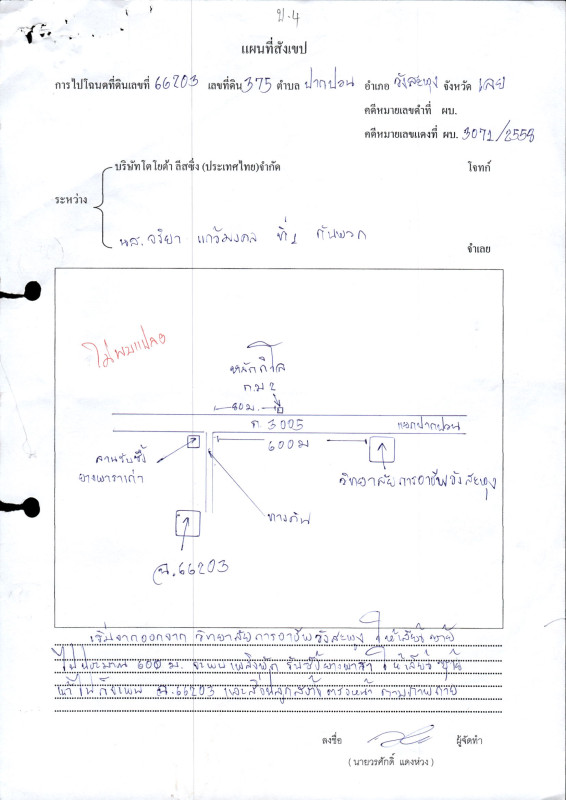 ป.4
แผนที่สังเขป
การไปโฉนดที่ดินเลขที่ 66203 เลขที่ดิน 375 ตำบล ปากปวน อำเภอ วังสะพุง จังหวัด เลย
คดีหมายเลขดำที่ ผบ.
คดีหมายเลขแดงที่ ผบ. 3071/2558
บริษัทโตโยต้า ลีสซิ่ง (ประเทศไทย)จำกัด โจทก์
ระหว่าง
นส. จริยา แก้วมงคล ที่1 กับพวก
จำเลย
ไม่พบแปลง
หลักกิโล
ก.ม 2
60ม.
ถ. 3005
แยกปากปวน
600 ม
ลานรับซื้อ
ยางพาราเก่า
วิทยาลัยการอาชีพวังสะพุง
ทางดิน
ฉ.66203
เริ่มจากออกจาก วิทยาลัยการอาชีพวังสะพุง ให้เลี้ยว ซ้าย
ไปประมาณ 600 ม. จะพบ รับซื้อยางพารา ให้เลี้ยว
ฉ.66203
ลงชื่อ ผู้จัดทำ
(นายวรศักดิ์ แดงห่วง)